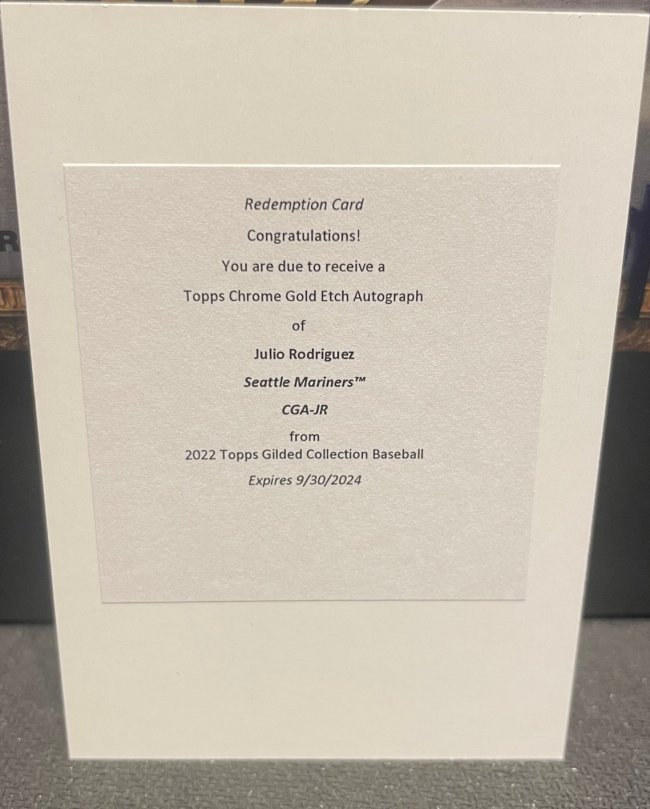 Redemption Card
Congratulations!
You are due to receive a
Topps Chrome Gold Etch Autograph
of
Julio Rodriguez
Seattle Mariners™
CGA-JR
from
2022 Topps Gilded Collection Baseball
Expires 9/30/2024